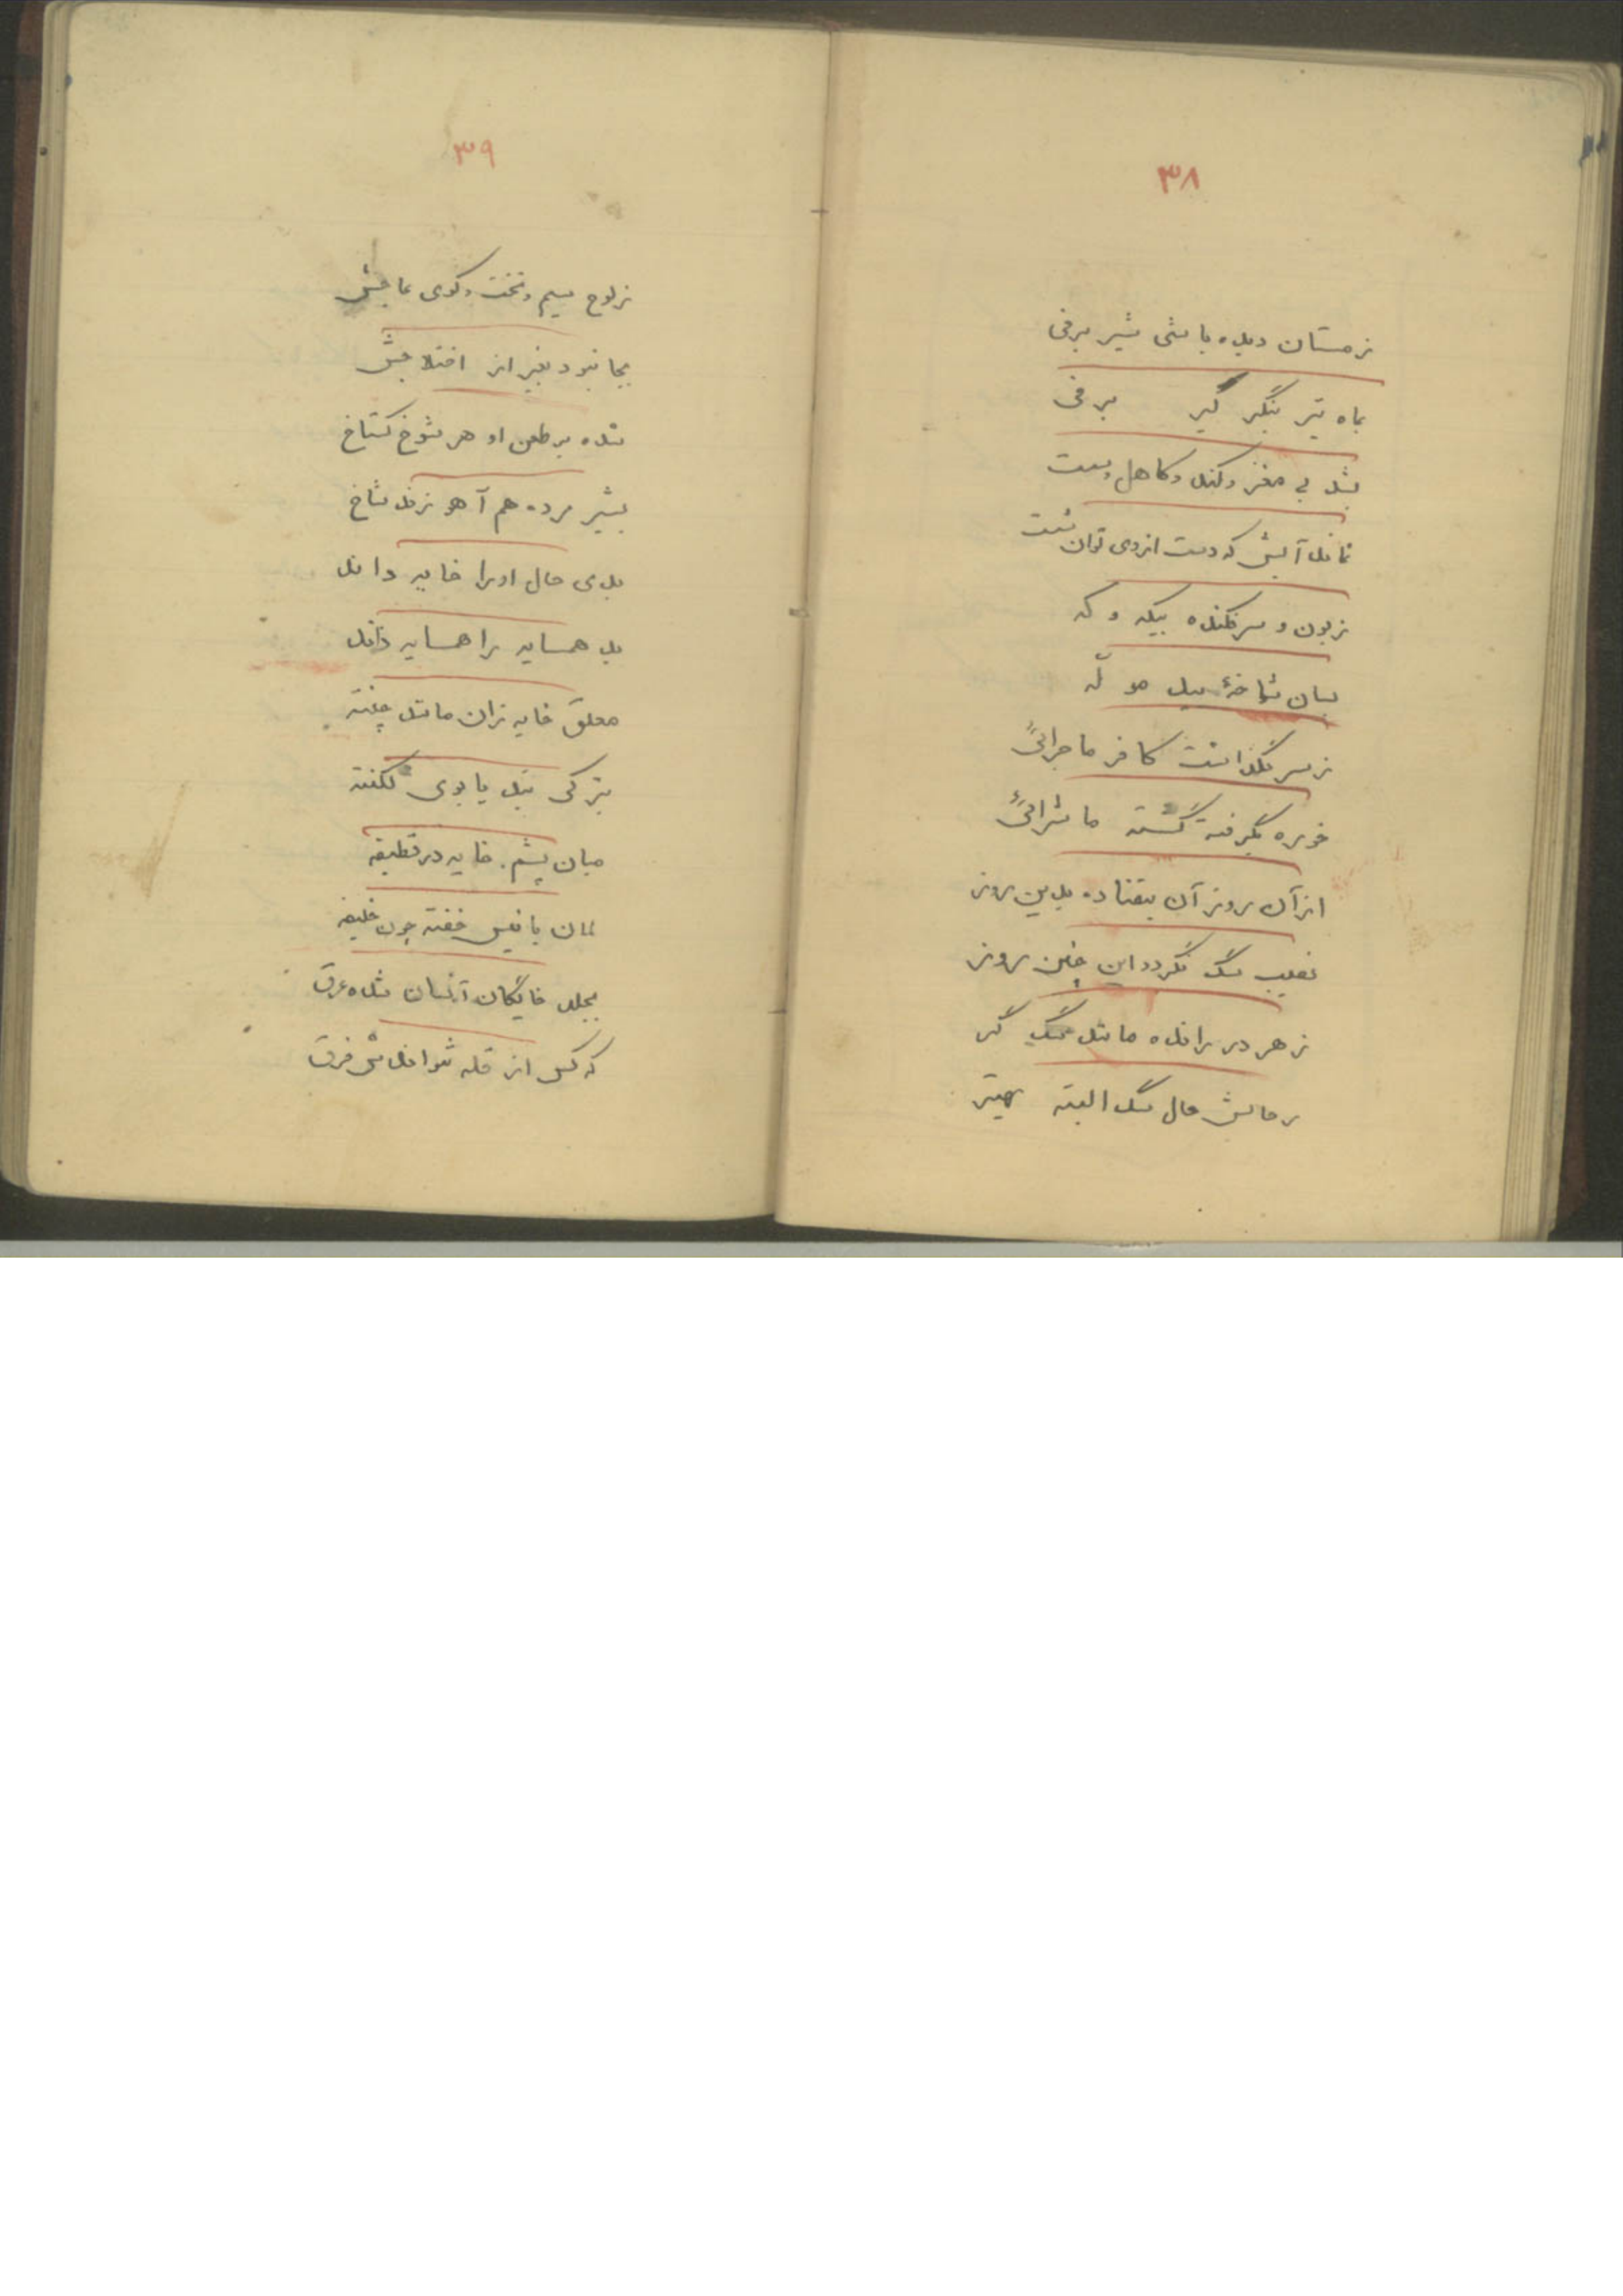 ۳۸
زمستان دیده باشی شیر برفی
بماه تیر بنگر گیر برفی
بشد بی مغز و گند و کاهل و سست
نماند آبش که دست از وی توان شست
زبون و سرفکنده بیکه و که
بسان شاخهٔ بید موله
ز سر نگذاشت کافر ماجرائی
خوره بگرفته گشته ماشرائی
از آن روز آن بیفتاده بدین روز
نصیب سگ نگردد این چنین روز
ز هر در رانده مانند سگ گر
ر حالش حال سگ البته بهتر
۳۹
ز لوح سیم و تخت و گوی عاجش
بجا نبود بغیر از اختلاجش
شده بر طعن او هر شوخ گستاخ
بشیر مرده هم آهو زند شاخ
بدی حال او را خایه داند
بد همسایه را همسایه داند
معلق خایه زان مانند چنته
بترکی بند یابوی لکنته
میان پشم خایه در قطیفه
لمان با فیس خفته چون خلیفه
بجلد خایگان آنسان شده غرق
که کس از قله نتواندش فرق